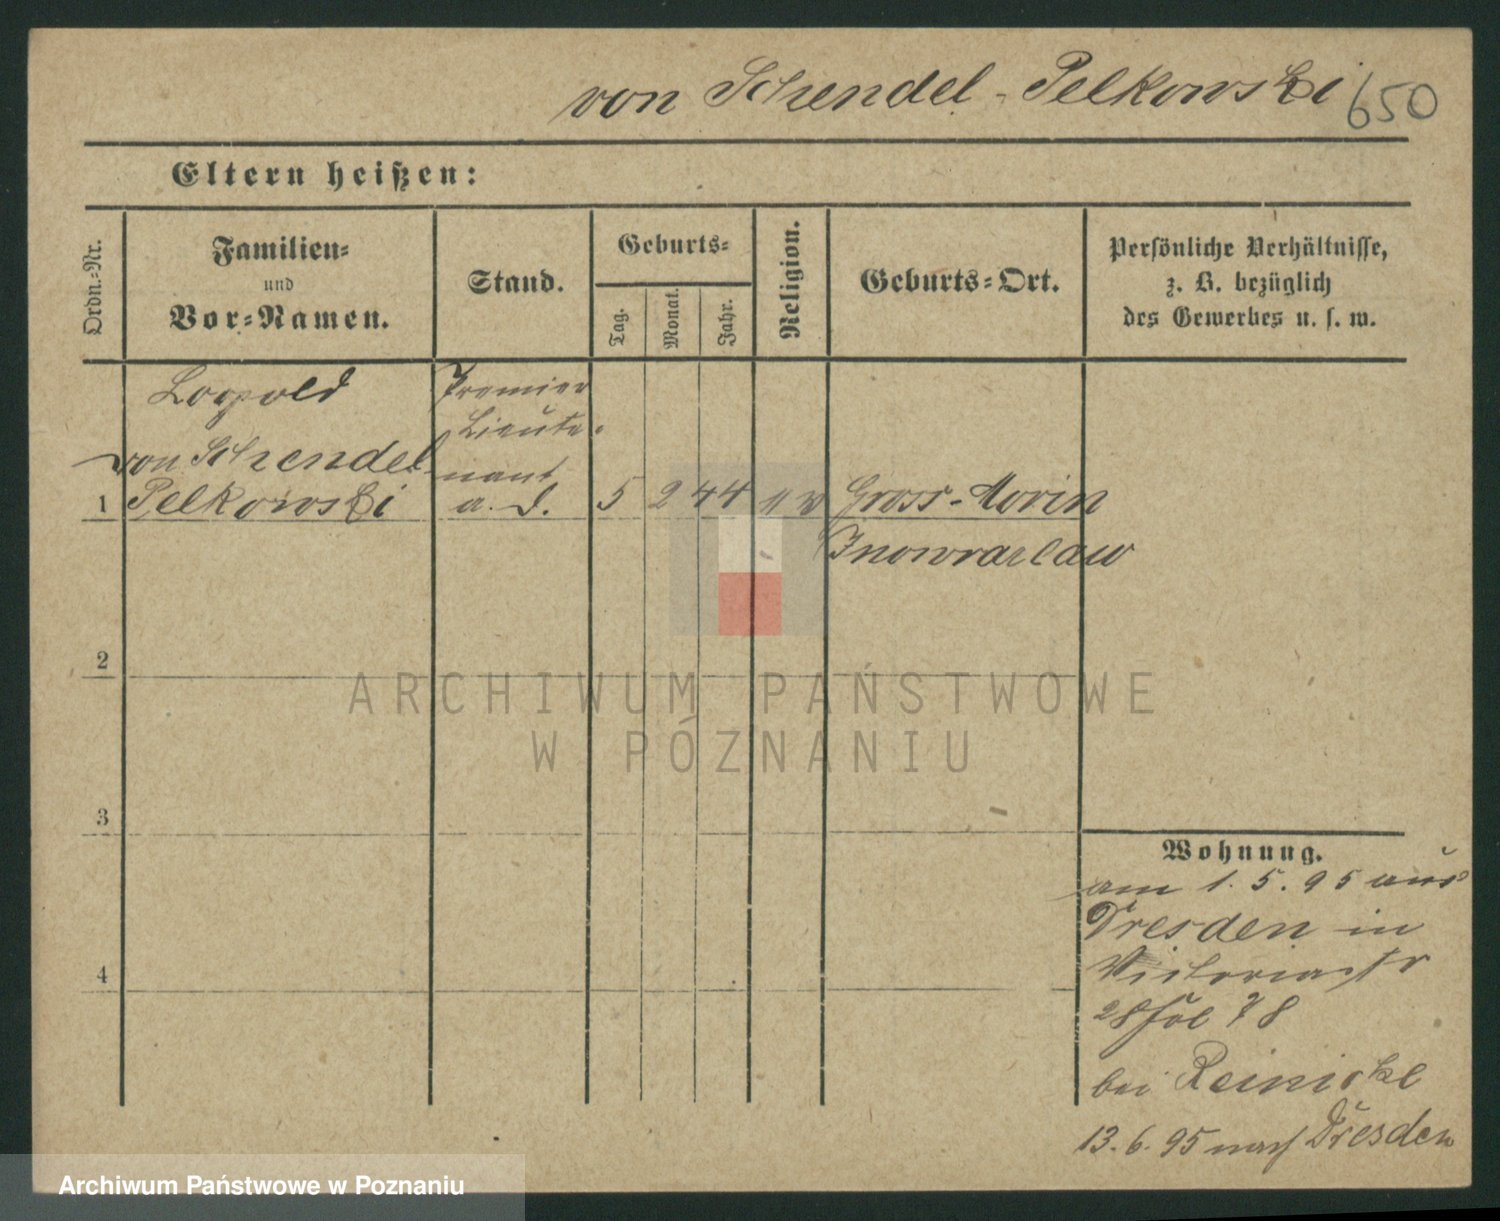 von Schendel-Pelkowski 650
Eltern heißen:
Ordn.-Nr.
Familien-
und
Vor-Namen.
Stand.
Geburts-
Tag.
Monat.
Jahr.
Religion.
Geburts-Ort.
Persönliche Verhältnisse,
z. B. bezüglich
des Gewerbes u. s. w.
Leopold
von Schendel-
Pelkowski
Premier
Lieute-
nant
a. D.
1
5 2 44
ev
Gross-Morin
Inowrazlaw
2
3
4
Wohnung.
am 1. 5. 95 aus
Dresden in
Victoriastr
28 fol 78
bei Reinicke
13. 6. 95 nach Dresden
ARCHIWUM PAŃSTWOWE
W POZNANIU
Archiwum Państwowe w Poznaniu